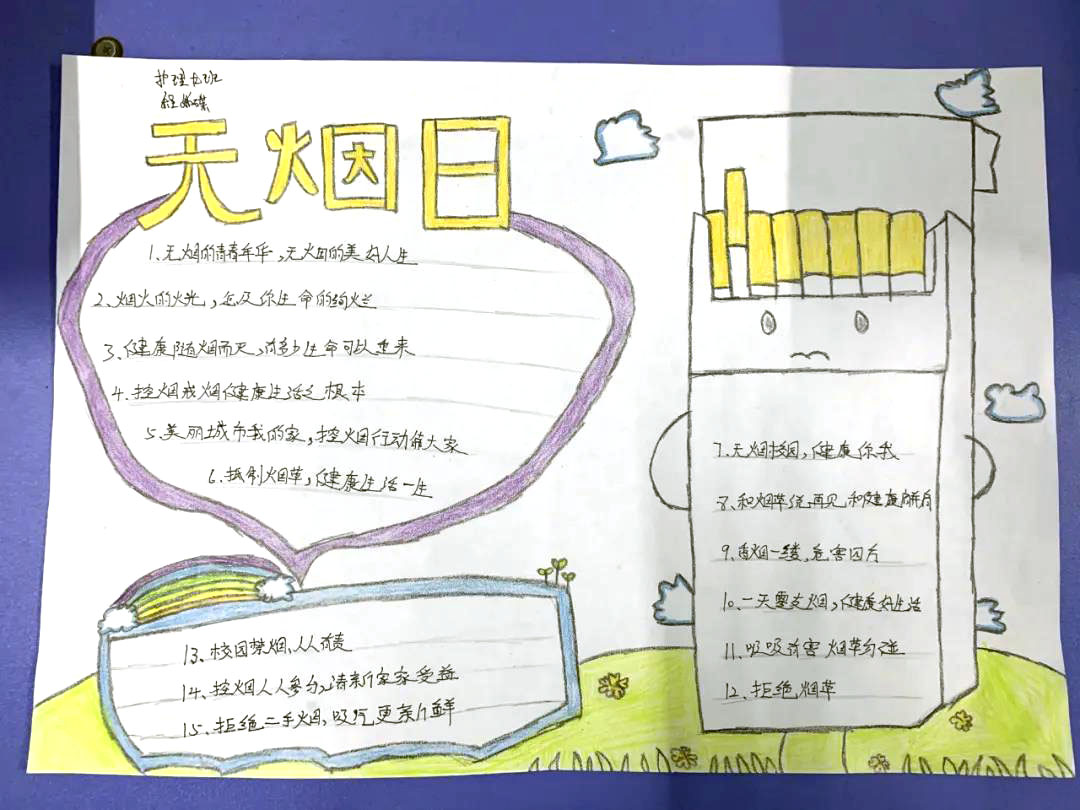 护理七班
无烟日
1、无烟的青春年华,无烟的美好人生
2、烟火的火光,危及你生命的绚烂
3、健康随烟而灭,有多少生命可以重来
4、控烟戒烟健康生活之根本
5、美丽城市我的家,控烟行动催大家
6、抵制烟草,健康生活一生
7、无烟校园,健康你我
8、和烟草说再见 和健康
9、香烟一缕,危害四方
10、一天 支烟,健康好生活
11、吸吸有害 烟草勿碰
12、拒绝烟草
13、校园禁烟、人人有责
14、控烟人人参与、清新家家受益
15、拒绝二手烟、吸气更新鲜